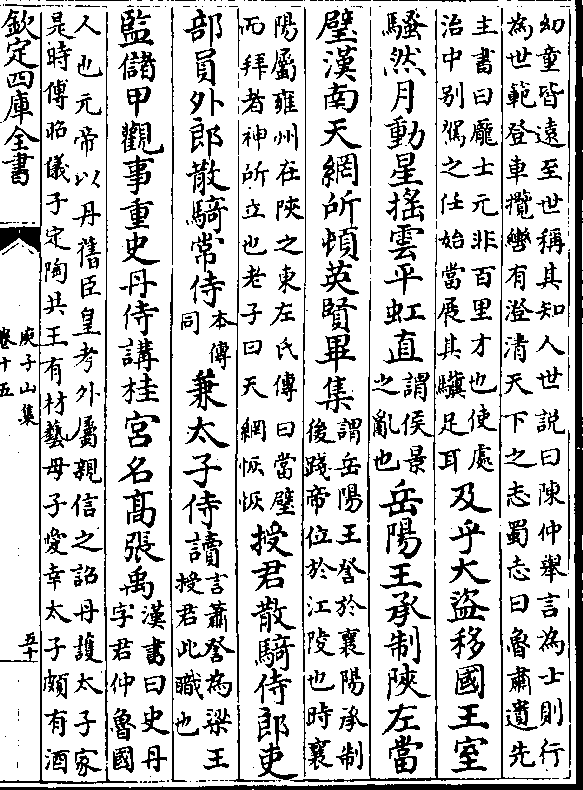 幼童皆遠至世稱其知人世説曰陳仲舉言為士則行
為世範登車攬轡有澄清天下之志蜀志曰魯肅遺先
主書曰龎士元非百里才也使處
治中别駕之任始當展其驥足耳
及乎大盜移國王室
騷然月動星揺雲平虹直
謂侯景
之亂也
岳陽王承制陜左當
璧漢南天網所頓英賢畢集
謂岳陽王詧於襄陽承制
後踐帝位於江陵也時襄
陽屬雍州在陜之東左氏傳曰當璧
而拜者神所立也老子曰天網恢恢
授君散騎侍郎吏
部員外郎散騎常侍
本傳
同
兼太子侍讀
言蕭詧為梁王
授君此職也
監儲甲觀事重史丹侍講桂宫名髙張禹
漢書曰史丹
字君仲魯國
人也元帝以丹舊臣皇考外屬親信之詔丹護太子家
是時傅昭儀子定陶共王有材藝母子愛幸太子頗有酒
欽定四庫全書
庾子山集
卷十五
五十